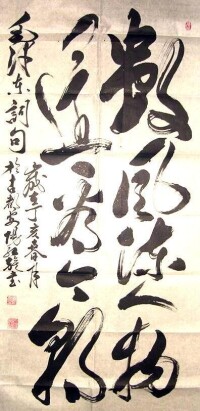 数风流人物
还看今朝
毛泽东词句
岁在丁亥春月
于古都安阳